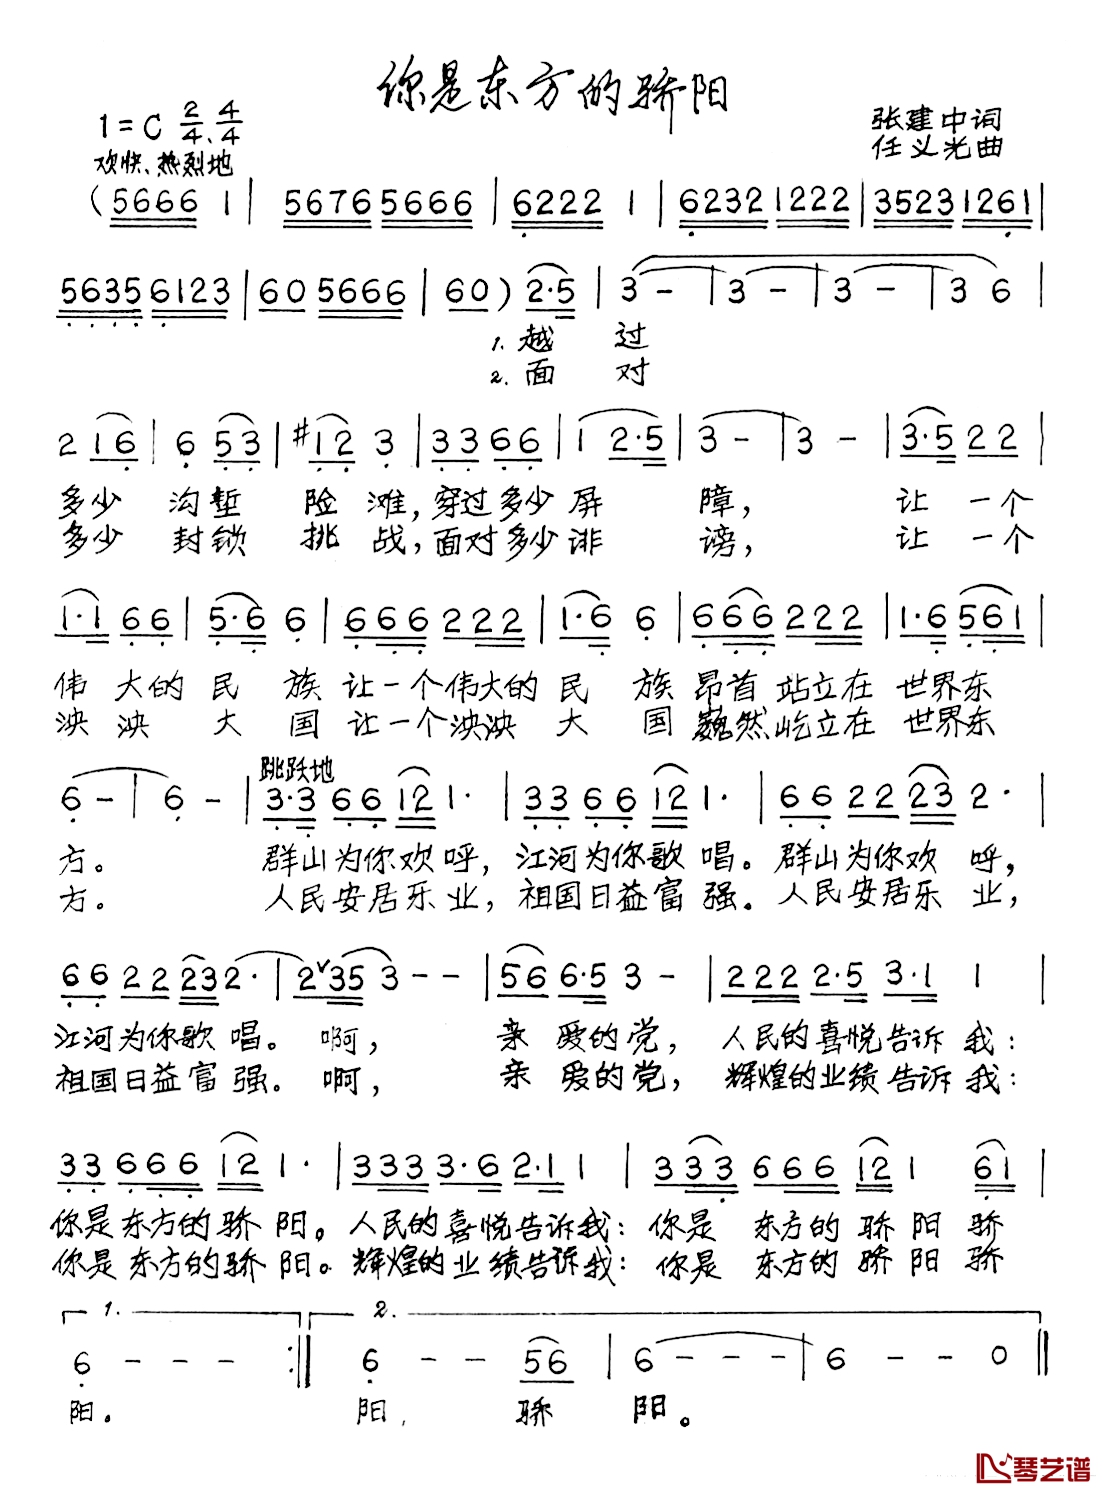 你是东方的骄阳
1=C 2/4、4/4
张建中词
任义光曲
欢快、热烈地
(5666 1 | 5676 5666 | 6222 1 | 6232 1222 | 3523 1261 |
5635 6123 | 60 5666 | 60) 2·5 | 3 - | 3 - | 3 - | 3 6 |
1. 越 过
2. 面 对
2 16 | 6 53 | #12 3 | 33 66 | 1 2·5 | 3 - | 3 - | 3·5 22 |
多少 沟堑 险 滩, 穿过多少屏 障, 让 一个
多少 封锁 挑 战, 面对多少诽 谤, 让 一个
1·1 66 | 5·6 6 | 666 222 | 1·6 6 | 666 222 | 1·6 561 |
伟 大的 民 族 让一个伟大的 民 族 昂首 站立在 世界东
泱 泱 大 国 让一个泱泱 大 国 巍然屹立在 世界东
6 - | 6 - | 3·3 66 12 1· | 33 66 12 1· | 66 22 23 2· |
跳跃地
方。 群山为你欢 呼, 江河为你歌 唱。 群山为你欢 呼,
方。 人民安居乐 业, 祖国日益富 强。 人民安居乐 业,
66 22 23 2· | 2∨35 3 - - | 56 6·5 3 - | 222 2·5 3·1 1 |
江河为你歌 唱。 啊, 亲 爱的党, 人民的喜悦告诉 我:
祖国日益富 强。 啊, 亲 爱的党, 辉煌的业绩告诉 我:
33 666 12 1· | 333 3·6 2·1 1 | 333 666 12 1 61 |
你是东方的骄 阳。 人民的喜悦告诉我: 你是 东方的 骄 阳 骄
你是东方的骄 阳。 辉煌的业绩告诉我: 你是 东方的 骄 阳 骄
1. 2.
6 - - - :‖ 6 - - 56 | 6 - - - | 6 - - 0 ‖
阳。 阳, 骄 阳。
琴艺谱